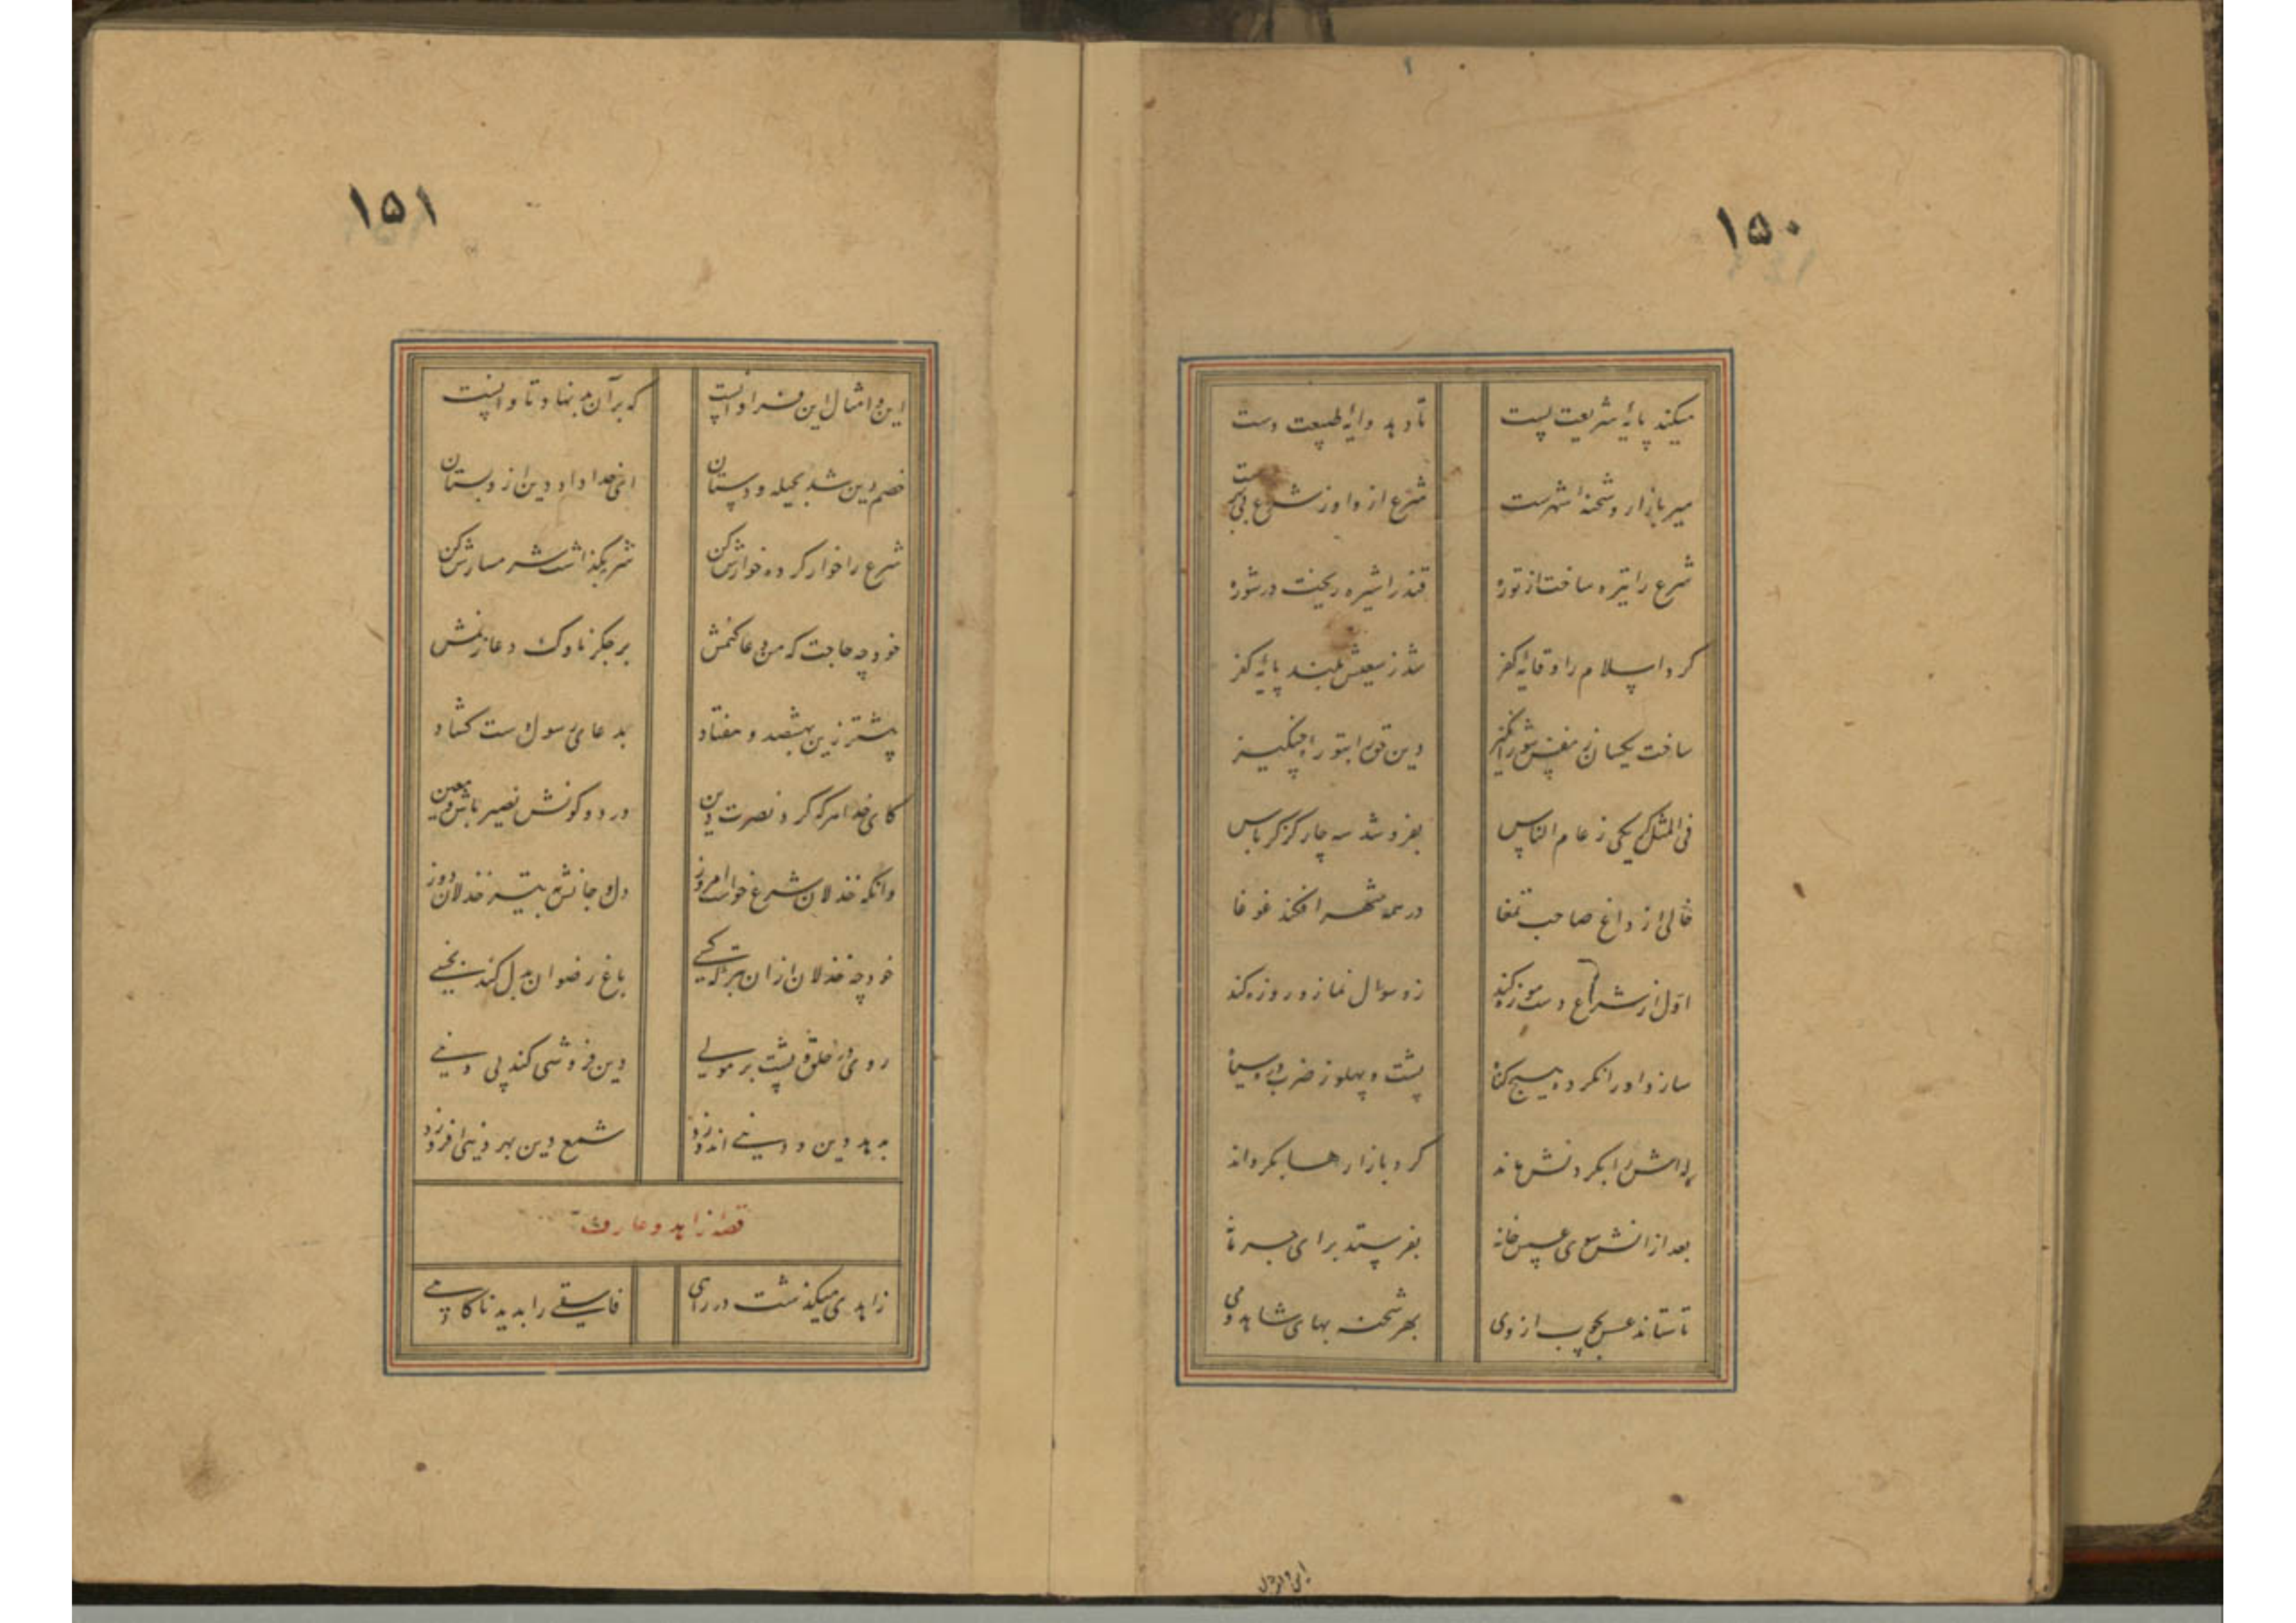 ۱۵۰
میکند پایهٔ شریعت پست تا دهد دایهٔ طبیعت دست
میر بازار و شحنهٔ شهرست شرع ازو او ز شرع بی بهرست
شرع را تیره ساخت از توره قند را شیره ریخت در شوره
کرد اسلام را وقایهٔ کفر شد ز سعیش بلند پایهٔ کفر
ساخت یکسان ز نفس شورانگیز دین قوی با توره چنگیز
فی المثل گر یکی ز عام الناس بفروشد سه چار گز کرباس
خالی از داغ صاحب تمغا در همه شهر افکند غوغا
اول از شرع دست موزه کند زو سوال نماز و روزه کند
سازد او را نکرده هیچ گناه پشت و پهلو ز ضرب دره سیاه
بر گردنش ماند گرد بازارها بگرداند
بعد ازانش سوی عسس خانه بفرستد برای جرمانه
تا ستاند عسس بچوب از وی بهر شحنه بهای شاهد و می
۱۵۱
این و امثال این فراوانست که بر آن بد نهاد تاوانست
خصم دین شد بحیله و دستان ای خدا داد دین ازو بستان
شرع را خوار کرد خوارش کن شرم بگذاشت شرمسارش کن
خود چه حاجت که من دعا کنمش بر جگر ناوک دعا زنمش
پیشتر زین بهشصد و هفتاد بدعای رسول دست گشاد
کای خدا هر که کرد نصرت دین در دو کونش نصیر باش و معین
وانکه خذلان شرع خواست امروز دل و جانش بتیر خذلان دوز
خود چه خذلان ازان بتر که کسی باغ رضوان بدل کند بخسی
روی در خلق و پشت بر مولی دین فروشی کند پی دنیی
بدهد دین و دنیی اندوزد شمع دین بهر دنیی افروزد
قصهٔ زاهد و عارف
زاهدی میگذشت در راهی فاسقی را بدید ناگاهی
این و امثال